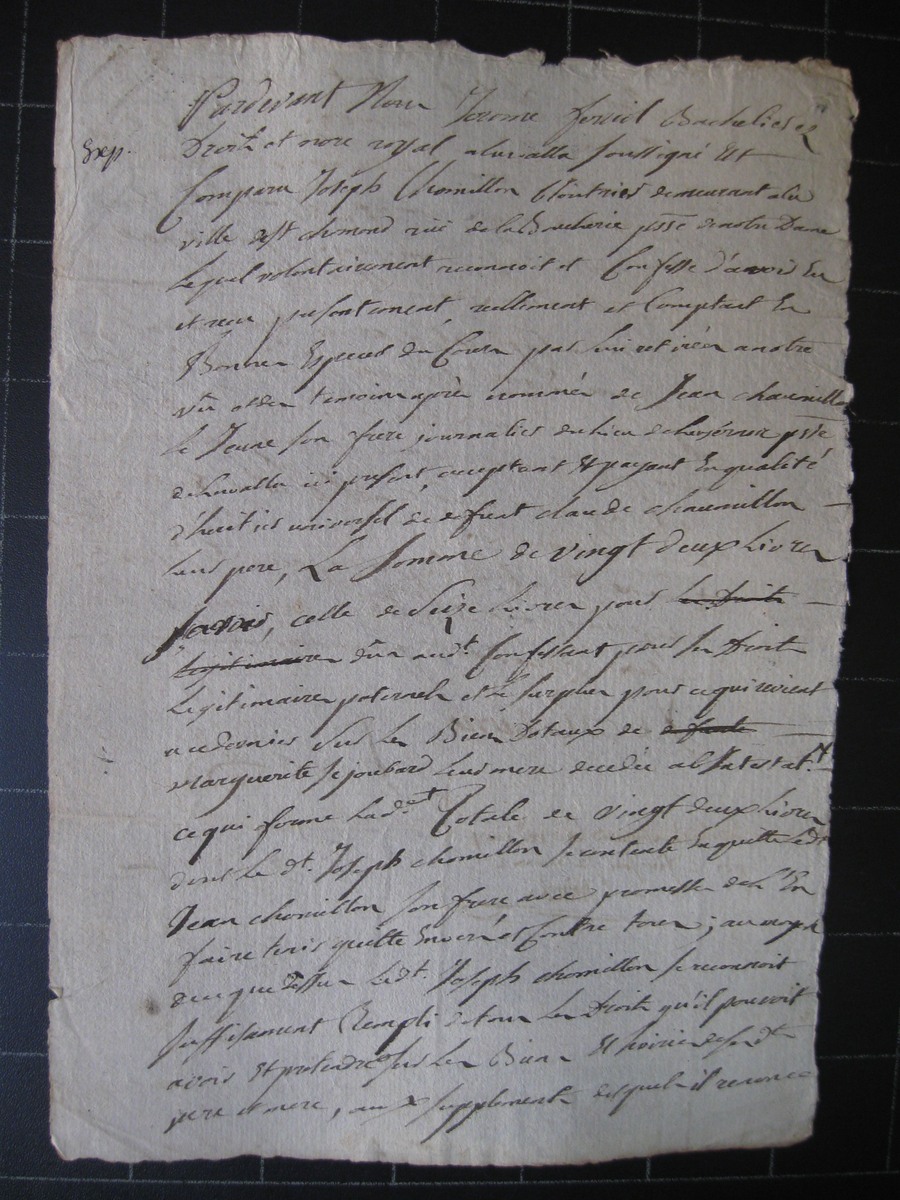 Pardevant Nous Jerome ferriol Bachelier es
Exp.
Droits et nore royal a lavalla soussigné Est
Comparu Joseph Chomillon Cloutrier demeurant a la
ville de st chomond rüe de la Boucherie psse de notre Dame
Lequel volontairement reconnoit et Confesse d'avoir Eu
et reçu presentement, reellement et Comptant En
Bonnes Especes du Cours par lui retirées a notre
vüe et des temoins après nommés de Jean chaumillon
le Jeune son frere journalier du lieu de psse
de Lavalla ici present, acceptant Et payant En qualité
d'heritier universel de defunt claude chaumillon
leur pere, La Somme de vingt deux Livres
savoir, celle de Seize Livres pour les Droits
legitimaires dûs audt. Confessant pour ses Droits
Legitimaires paternels et le surplus pour ce qui revient
a ce dernier sur les Biens Dotaux de defunte
Marguerite sejoubard leur mere decedée ab Intestat.
ce qui forme lade. Totale de vingt deux Livres
dont le dt. Joseph chomillon se contente En quitte ledt
Jean chomillon son frere avec promesse de l'En
faire tenir quitte Envers et Contre tous ; au moyen
de ce que dessus ledt. Joseph chomillon se reconnoit
suffisament Rempli de tous les Droits qu'il pouvoit
avoir Et pretendre sur les Biens Et hoiries de sesdts
pere et mere, aux supplements desquels il renonce